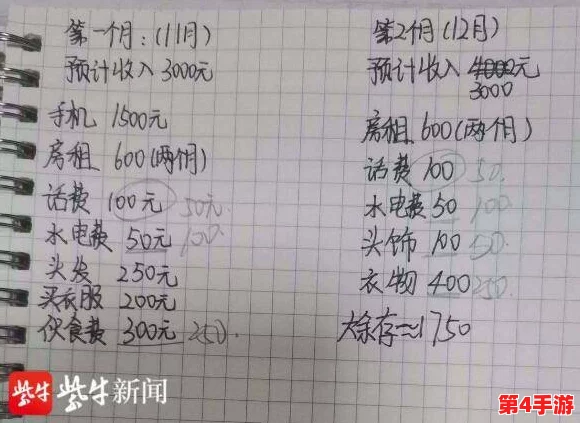 第一个月:(11月)
预计收入 3000元
手机 1500元
房租 600(两个月)
话费 100元 50元.
水电费 50元 100
头发 250元
买衣服 200元
伙食费 300元 250.
第2个月(12月)
预计收入 4000元
3000
房租 600(两个月)
话费 100 50.
水电费 50 100
头饰 100 50.
衣物 400 250.
余存≈1750
紫牛 紫牛新闻
第4手游